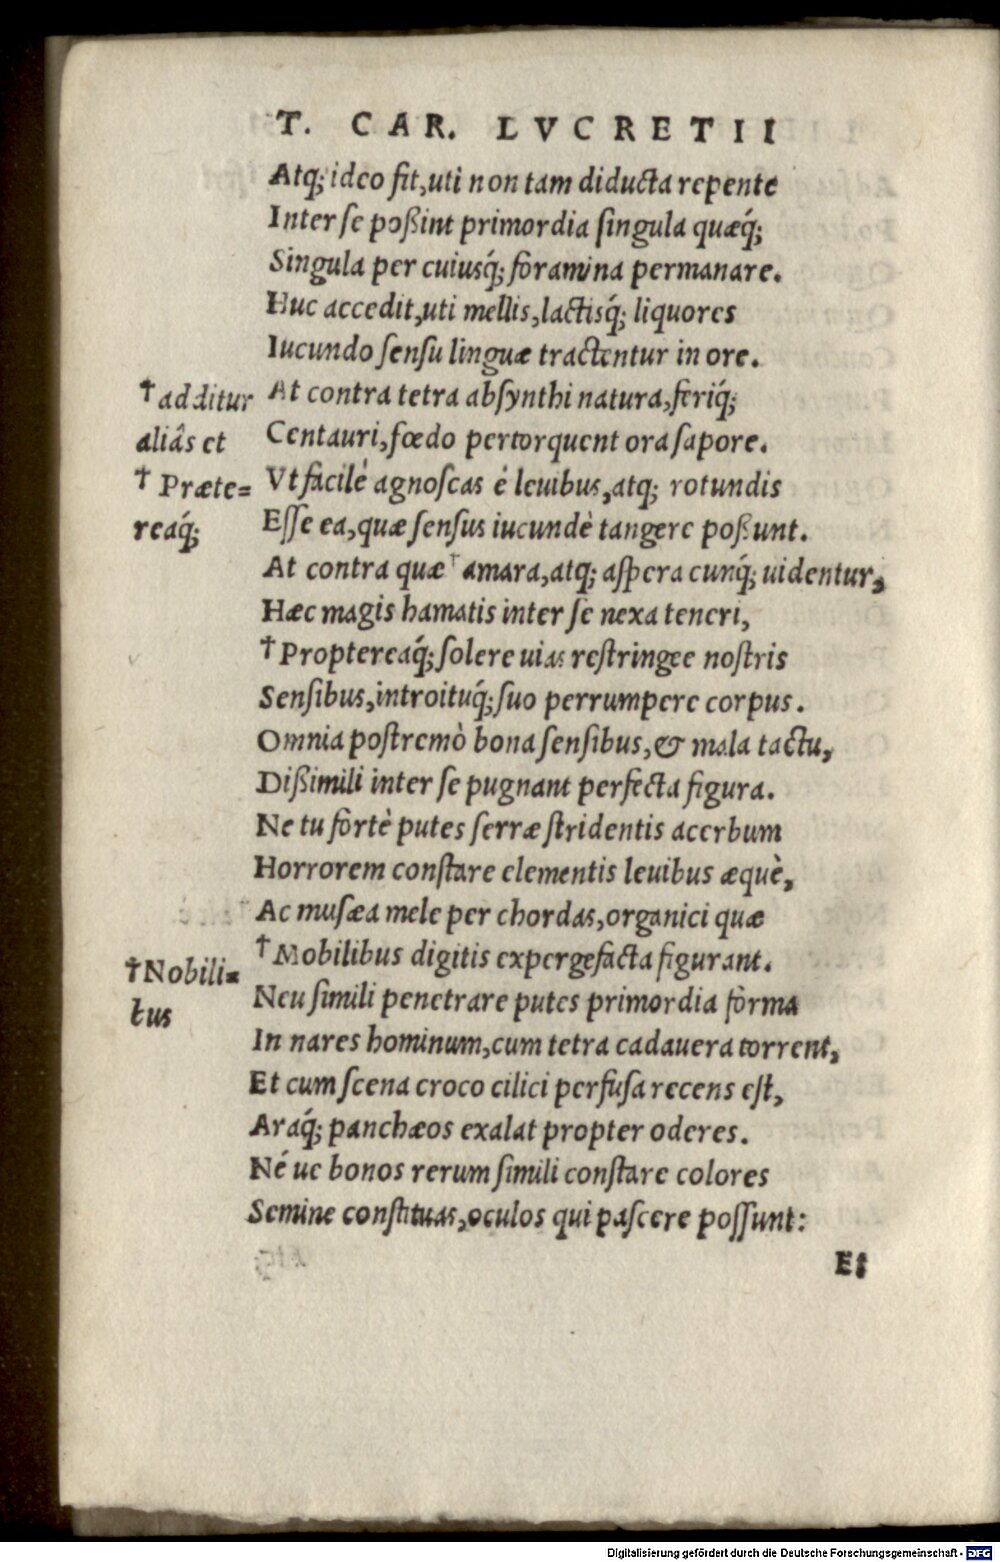 T. CAR. LVCRETII
Atq; ideo fit, uti non tam diducta repente
Inter se poßint primordia singula quæq́;
Singula per cuiusq́; foramina permanare.
Huc accedit, uti mellis, lactisq́; liquores
Iucundo sensu linguæ tractentur in ore.
†additur
aliâs et
At contra tetra absynthi natura, feriq́;
Centauri, fœdo pertorquent ora sapore.
† Præte=
reaq́;
Vt facilè agnoscas é leuibus, atq; rotundis
Esse ea, quæ sensus iucundè tangere poßunt.
At contra quæ † amara, atq; aspera cunq́; uidentur,
Hæc magis hamatis inter se nexa teneri,
†Proptereaq́; solere uias restringee nostris
Sensibus, introituq́; suo perrumpere corpus.
Omnia postremò bona sensibus, & mala tactu,
Dißimili inter se pugnant perfecta figura.
Ne tu fortè putes serræ stridentis acerbum
Horrorem constare elementis leuibus æquè,
Ac musæa mele per chordas, organici quæ
†Nobili=
bus
†Mobilibus digitis expergefacta figurant.
Neu simili penetrare putes primordia forma
In nares hominum, cum tetra cadauera torrent,
Et cum scena croco cilici perfusa recens est,
Araq́; panchæos exalat propter odores.
Né ue bonos rerum simili constare colores
Semine constituas, oculos qui pascere possunt:
Et
Digitalisierung gefördert durch die Deutsche Forschungsgemeinschaft - DFG